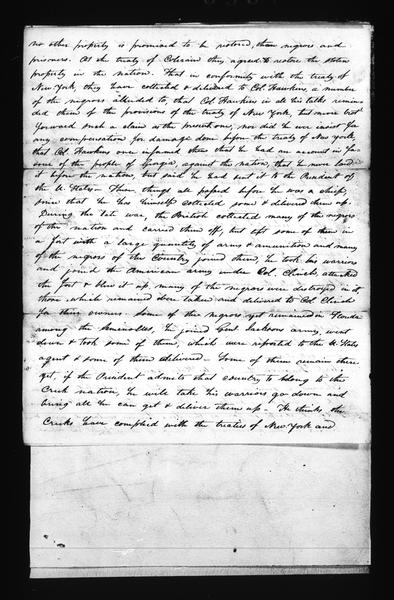 no other property is promised to be restored, than negroes and
prisoners. At the treaty of Colerain they agreed to restore the stolen
property in the nation. That in conformity with the treaty of
New York, they have collected & delivered to Col Hawkins, a number
of the negroes alluded to, that Col Hawkins in all his talks remin
ded them of the provisions of the treaty of New York, but never but
forward such a claim as the present one, nor did he ever insist for
any compensation for damage done before the treaty of New York,
that Col Hawkins once informed them that he had an account in fa
vour of the people of Georgia, against the nation, that he never laid
it before the nation, but said he had sent it to the President of
the U. States. These things all passed before he was a chief,
since that he has himself collected some & delivered them up.
During the late war, the British collected many of the negroes
of the nation and carried them off, but left some of them in
a fort with a large quantity of arms & amunition and many
of the negroes of this Country joined them, he took his warriors
and joined the American army under Col. Clinch, attacked
the fort & blew it up, many of the negroes were destroyed in it,
those which remained were taken and delivered to Col Clinch
for their owners. Some of the negroes yet remained in Florida
among the Seminolles, he joined Genl Jacksons army, went
down & took some of them, which were reported to the U. States
agent & some of them delivered. Some of them remain there
yet, if the President admits that country to belong to the
Creek nation, he will take his warriors go down and
bring all he can get & deliver them up. He thinks the
Creeks have complied with the treaties of New York and